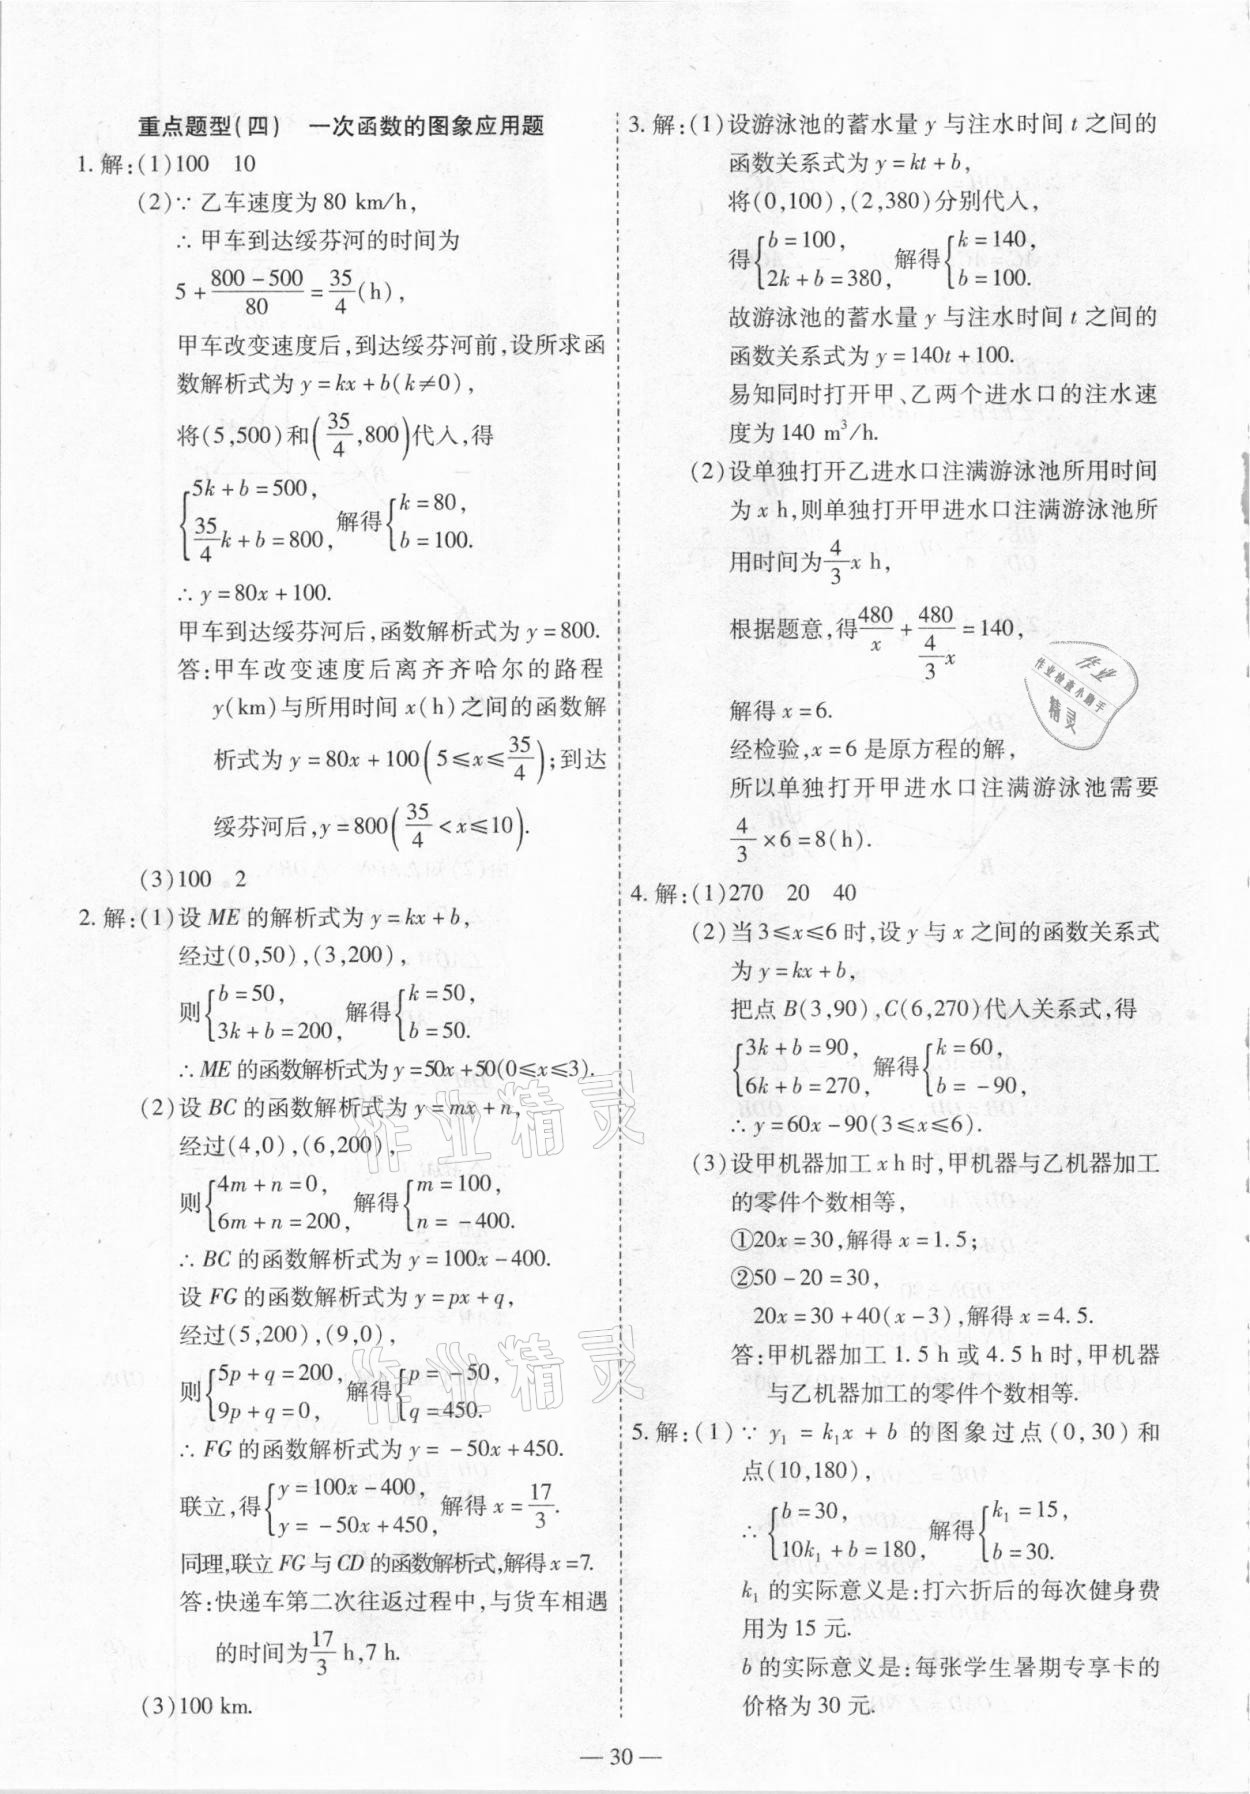 重点题型(四)　一次函数的图象应用题
1. 解:(1)100　10
(2)∵乙车速度为80 km/h,
∴甲车到达绥芬河的时间为
5+\frac{800-500}{80}=\frac{35}{4}(h),
甲车改变速度后,到达绥芬河前,设所求函
数解析式为y=kx+b(k≠0),
将(5,500)和(\frac{35}{4},800)代入,得
{5k+b=500, \frac{35}{4}k+b=800, 解得{k=80, b=100.
∴y=80x+100.
甲车到达绥芬河后,函数解析式为y=800.
答:甲车改变速度后离齐齐哈尔的路程
y(km)与所用时间x(h)之间的函数解
析式为y=80x+100(5≤x≤\frac{35}{4});到达
绥芬河后,y=800(\frac{35}{4}<x≤10).
(3)100　2
2. 解:(1)设ME的解析式为y=kx+b,
经过(0,50),(3,200),
则{b=50, 3k+b=200, 解得{k=50, b=50.
∴ME的函数解析式为y=50x+50(0≤x≤3).
(2)设BC的函数解析式为y=mx+n,
经过(4,0),(6,200),
则{4m+n=0, 6m+n=200, 解得{m=100, n=-400.
∴BC的函数解析式为y=100x-400.
设FG的函数解析式为y=px+q,
经过(5,200),(9,0),
则{5p+q=200, 9p+q=0, 解得{p=-50, q=450.
∴FG的函数解析式为y=-50x+450.
联立,得{y=100x-400, y=-50x+450, 解得x=\frac{17}{3}.
同理,联立FG与CD的函数解析式,解得x=7.
答:快递车第二次往返过程中,与货车相遇
的时间为\frac{17}{3} h,7 h.
(3)100 km.
3. 解:(1)设游泳池的蓄水量y与注水时间t之间的
函数关系式为y=kt+b,
将(0,100),(2,380)分别代入,
得{b=100, 2k+b=380, 解得{k=140, b=100.
故游泳池的蓄水量y与注水时间t之间的
函数关系式为y=140t+100.
易知同时打开甲、乙两个进水口的注水速
度为140 m³/h.
(2)设单独打开乙进水口注满游泳池所用时间
为x h,则单独打开甲进水口注满游泳池所
用时间为\frac{4}{3}x h,
根据题意,得\frac{480}{x}+\frac{480}{\frac{4}{3}x}=140,
解得x=6.
经检验,x=6是原方程的解,
所以单独打开甲进水口注满游泳池需要
\frac{4}{3}×6=8(h).
4. 解:(1)270　20　40
(2)当3≤x≤6时,设y与x之间的函数关系式
为y=kx+b,
把点B(3,90),C(6,270)代入关系式,得
{3k+b=90, 6k+b=270, 解得{k=60, b=-90,
∴y=60x-90(3≤x≤6).
(3)设甲机器加工x h时,甲机器与乙机器加工
的零件个数相等,
①20x=30,解得x=1.5;
②50-20=30,
20x=30+40(x-3),解得x=4.5.
答:甲机器加工1.5 h或4.5 h时,甲机器
与乙机器加工的零件个数相等.
5. 解:(1)∵y₁=k₁x+b的图象过点(0,30)和
点(10,180),
∴{b=30, 10k₁+b=180, 解得{k₁=15, b=30.
k₁的实际意义是:打六折后的每次健身费
用为15元.
b的实际意义是:每张学生暑期专享卡的
价格为30元.
— 30 —
作业
作业检查小助手
精灵
作业精灵
作业精灵